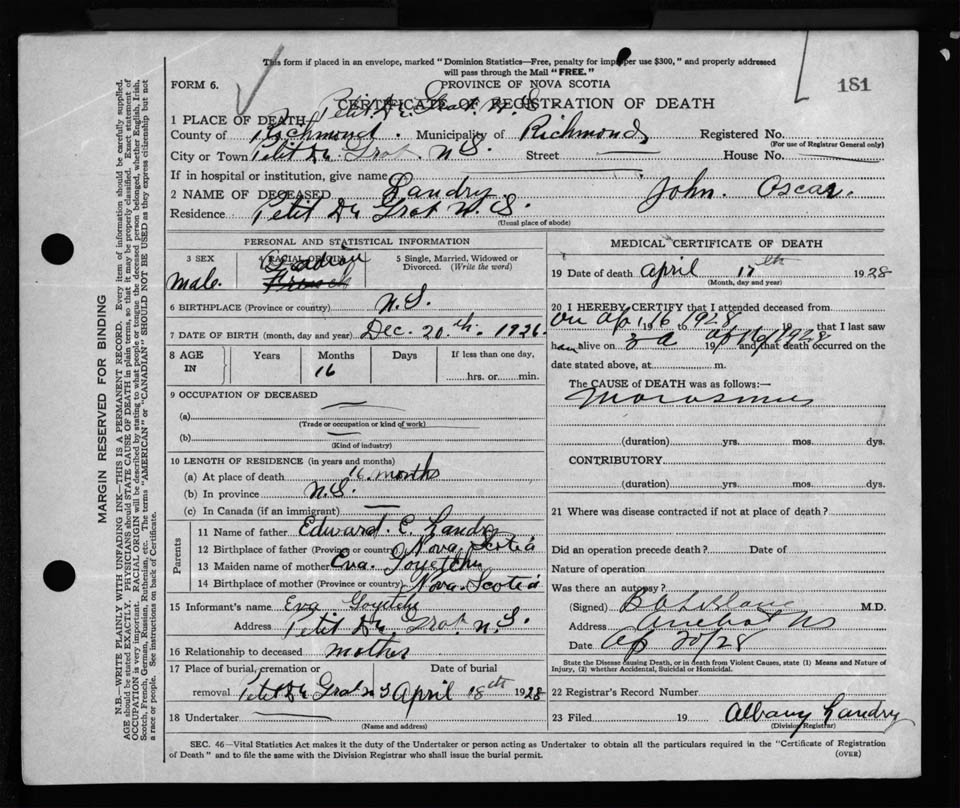 This form if placed in an envelope, marked "Dominion Statistics—Free, penalty for improper use $300," and properly addressed
will pass through the Mail "FREE."
FORM 6.
PROVINCE OF NOVA SCOTIA
181
CERTIFICATE OF REGISTRATION OF DEATH
1 PLACE OF DEATH Petit De Grat N.S.
County of Richmond. Municipality of Richmond Registered No.
(For use of Registrar General only)
City or Town Petit De Grat. N S. Street House No.
If in hospital or institution, give name
2 NAME OF DECEASED Landry John. Oscar.
Residence Petit De Grat N. S.
(Usual place of abode)
PERSONAL AND STATISTICAL INFORMATION
3 SEX 4 RACIAL ORIGIN 5 Single, Married, Widowed or
Divorced. (Write the word)
male. French
6 BIRTHPLACE (Province or country) N.S.
7 DATE OF BIRTH (month, day and year) Dec. 20th. 1926.
8 AGE IN Years Months Days If less than one day,
16 hrs. or min.
9 OCCUPATION OF DECEASED
(a)
(Trade or occupation or kind of work)
(b)
(Kind of industry)
10 LENGTH OF RESIDENCE (in years and months)
(a) At place of death 16 months
(b) In province N.S.
(c) In Canada (if an immigrant)
Parents
11 Name of father Edward. E. Landry
12 Birthplace of father (Province or country) Nova Scotia
13 Maiden name of mother Eva.
14 Birthplace of mother (Province or country) Nova. Scotia
15 Informant's name Eva
Address Petit De Grat. N.S.
16 Relationship to deceased mother
17 Place of burial, cremation or Date of burial
removal Petit De Grat N S April 18th 1928
18 Undertaker
(Name and address)
MEDICAL CERTIFICATE OF DEATH
19 Date of death April 17th 1928
(Month, day and year)
20 I HEREBY CERTIFY that I attended deceased from
on Ap 16 1928 19 to 19 that I last saw
h alive on 19 Ap 16/1928 and that death occurred on the
date stated above, at m.
The CAUSE of DEATH was as follows:—
Marasmus
(duration) yrs. mos. dys.
CONTRIBUTORY
(duration) yrs. mos. dys.
21 Where was disease contracted if not at place of death?
Did an operation precede death? Date of
Nature of operation
Was there an autopsy?
(Signed) M.D.
Address Arichat NS
Date Ap 20/28
State the Disease causing Death, or in death from Violent Causes, state (1) Means and Nature of
Injury, (2) whether Accidental, Suicidal or Homicidal.
22 Registrar's Record Number
23 Filed 19 Albany Landry
(Division Registrar)
SEC. 46—Vital Statistics Act makes it the duty of the Undertaker or person acting as Undertaker to obtain all the particulars required in the "Certificate of Registration
of Death" and to file the same with the Division Registrar who shall issue the burial permit.
(OVER)
MARGIN RESERVED FOR BINDING
N.B.—WRITE PLAINLY WITH UNFADING INK—THIS IS A PERMANENT RECORD. Every item of information should be carefully supplied.
AGE should be stated EXACTLY. PHYSICIANS should STATE CAUSE OF DEATH in plain terms, so that it may be properly classified. Exact statement of
OCCUPATION is very important. RACIAL ORIGIN will be described by stating to what people or tongue the deceased person belonged, whether English, Irish,
Scotch, French, German, Russian, Ruthenian, etc. The terms "AMERICAN" or "CANADIAN" SHOULD NOT BE USED as they express citizenship but not
a race or people. See instructions on back of Certificate.